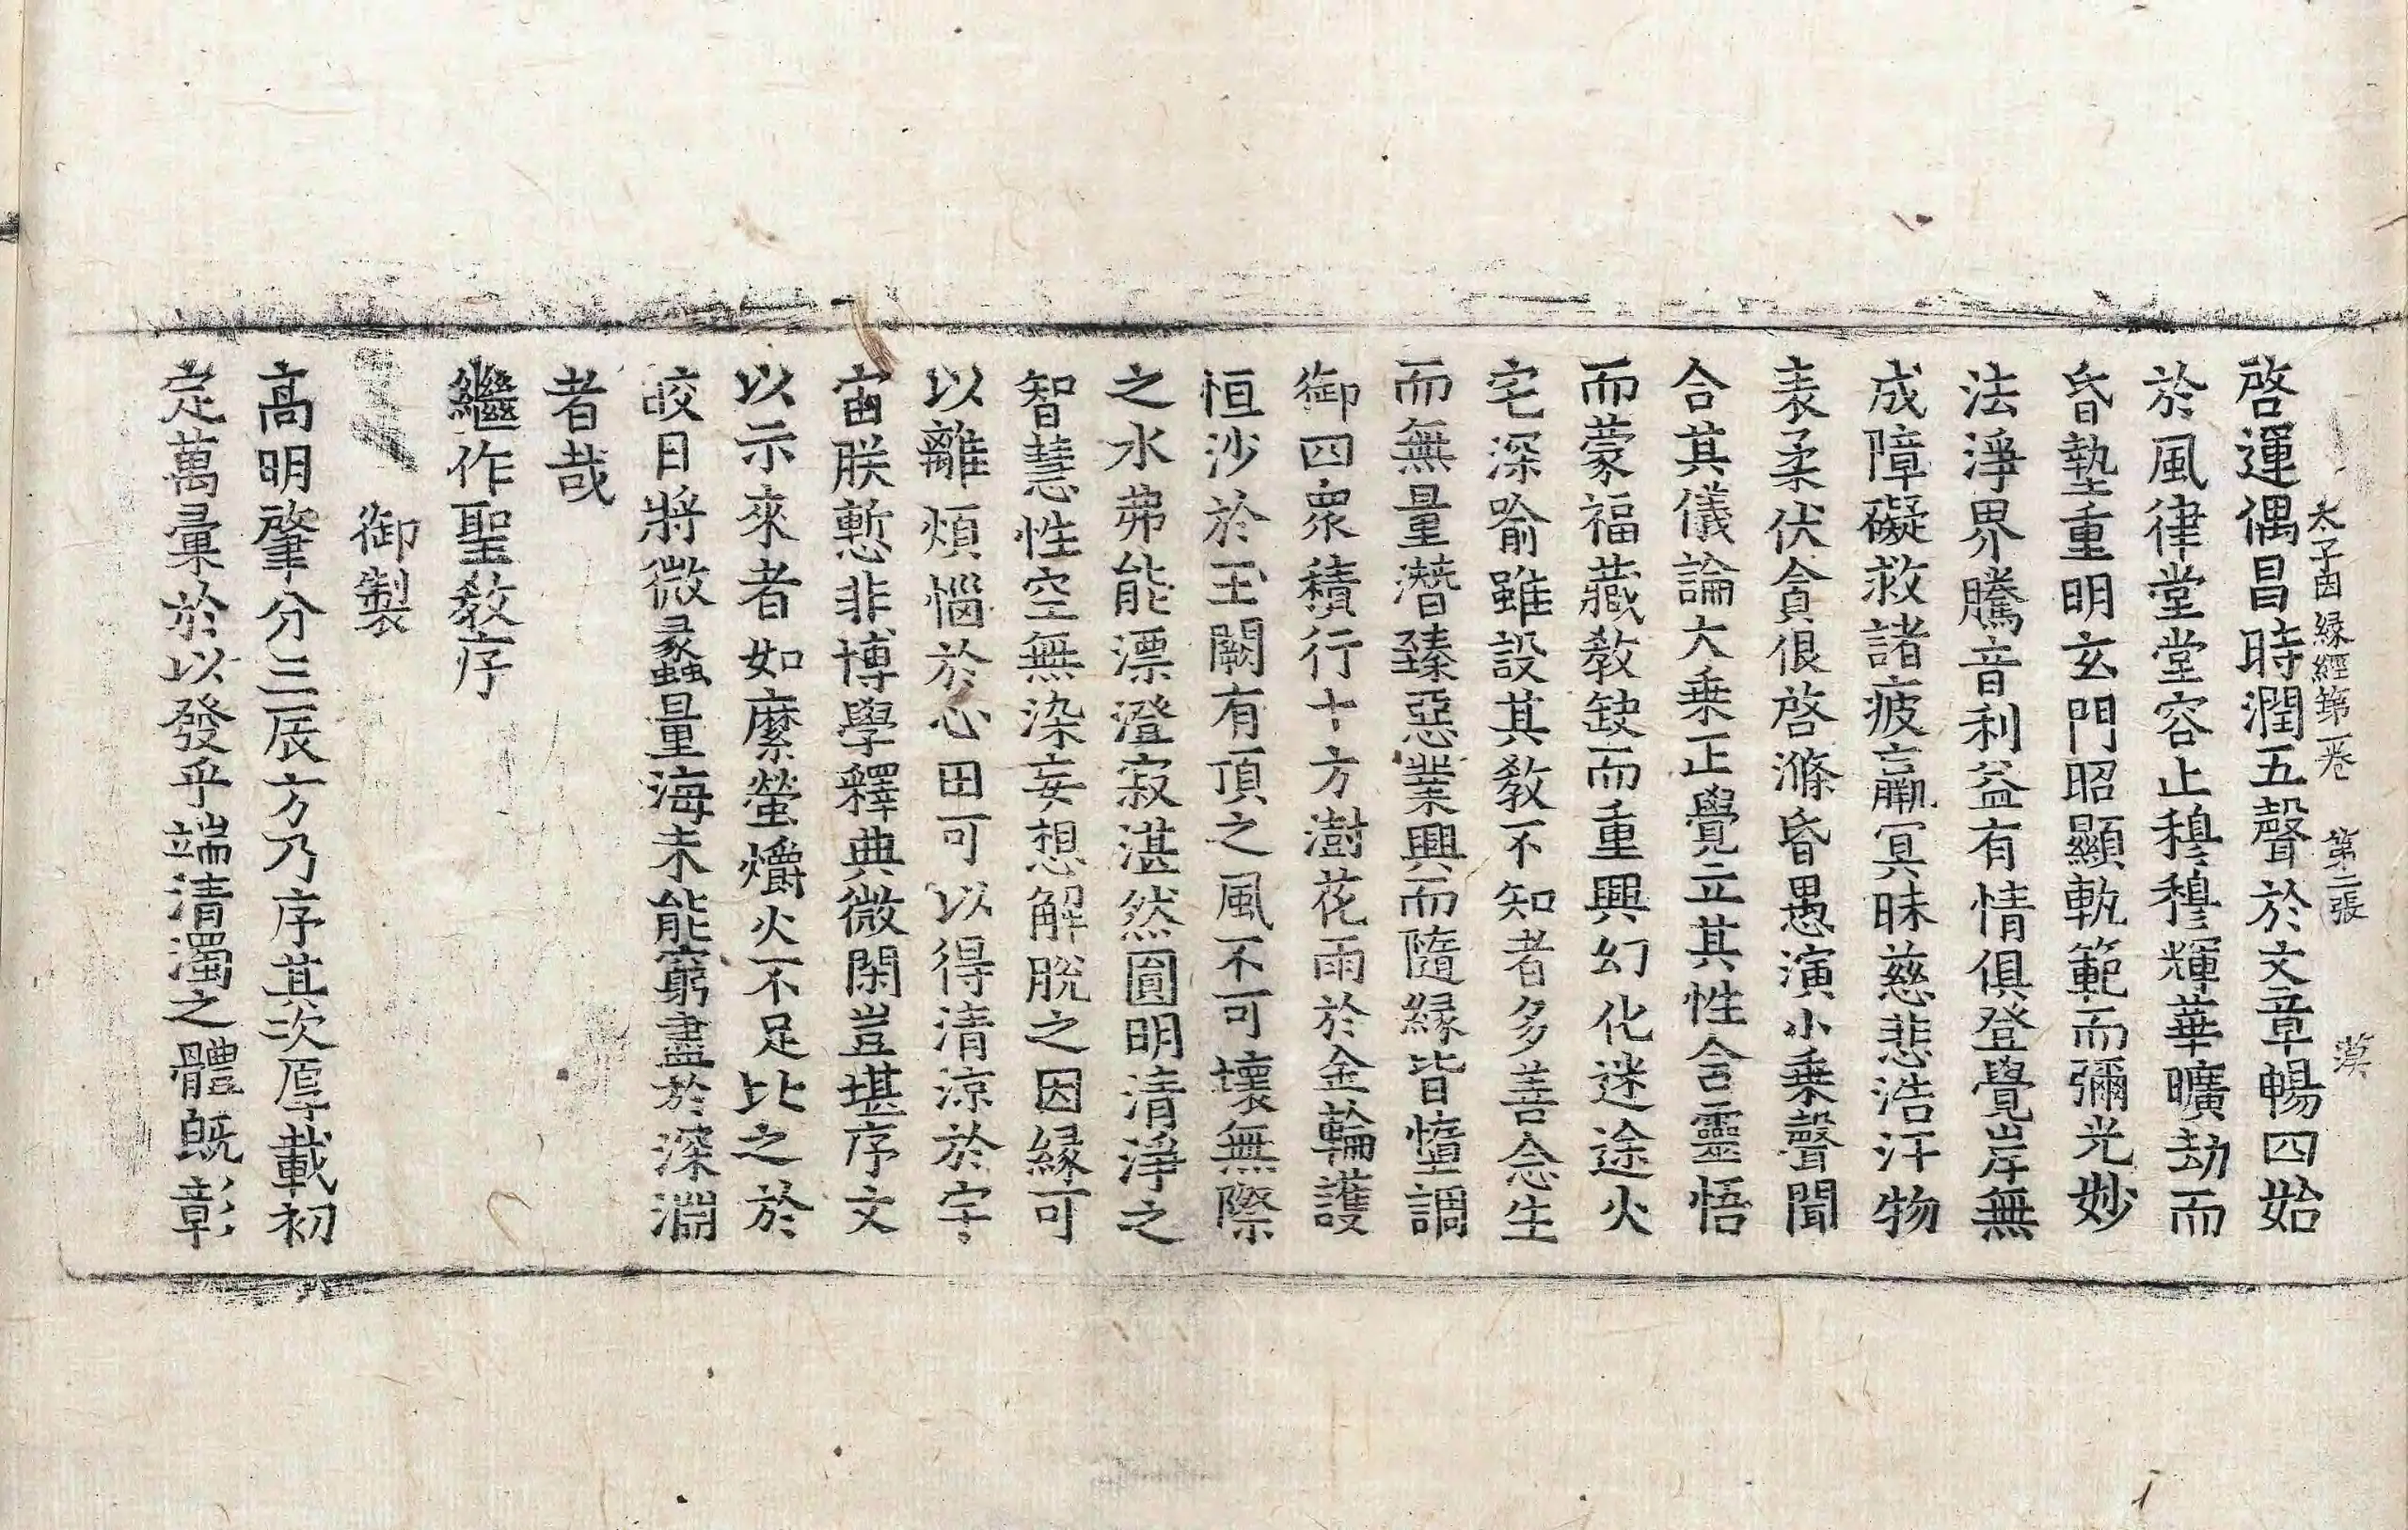 太子因緣經第一卷 第二張 漠
啓運偶昌時潤五聲於文章暢四始
於風律堂堂容止穆穆輝華曠劫而
昏墊重明玄門昭顯軌範而彌光妙
法淨界騰音利益有情俱登覺岸無
成障礙救諸疲羸冥昧慈悲浩汗物
表柔伏貪佷啓滌昏愚演小乗聲聞
合其儀論大乗正覺立其性含靈悟
而蒙福藏教缺而重興幻化迷途火
宅深喻雖設其教不知者多善念生
而無量潛臻惡業興而隨緣皆墮調
御四衆積行十方澍花雨於金輪護
恒沙於玉闕有頂之風不可壞無際
之水弗能漂澄寂湛然圓明清淨之
智慧性空無染妄想解脫之因緣可
以離煩惱於心田可以得清涼於宇
宙朕慙非博學釋典微閑豈堪序文
以示來者如縻螢爝火不足比之於
皎日將微蠡量海未能窮盡於深淵
者哉
繼作聖教序
御製
高明肇分三辰方乃序其次厚載初
定萬彙於以發乎端清濁之體旣彰